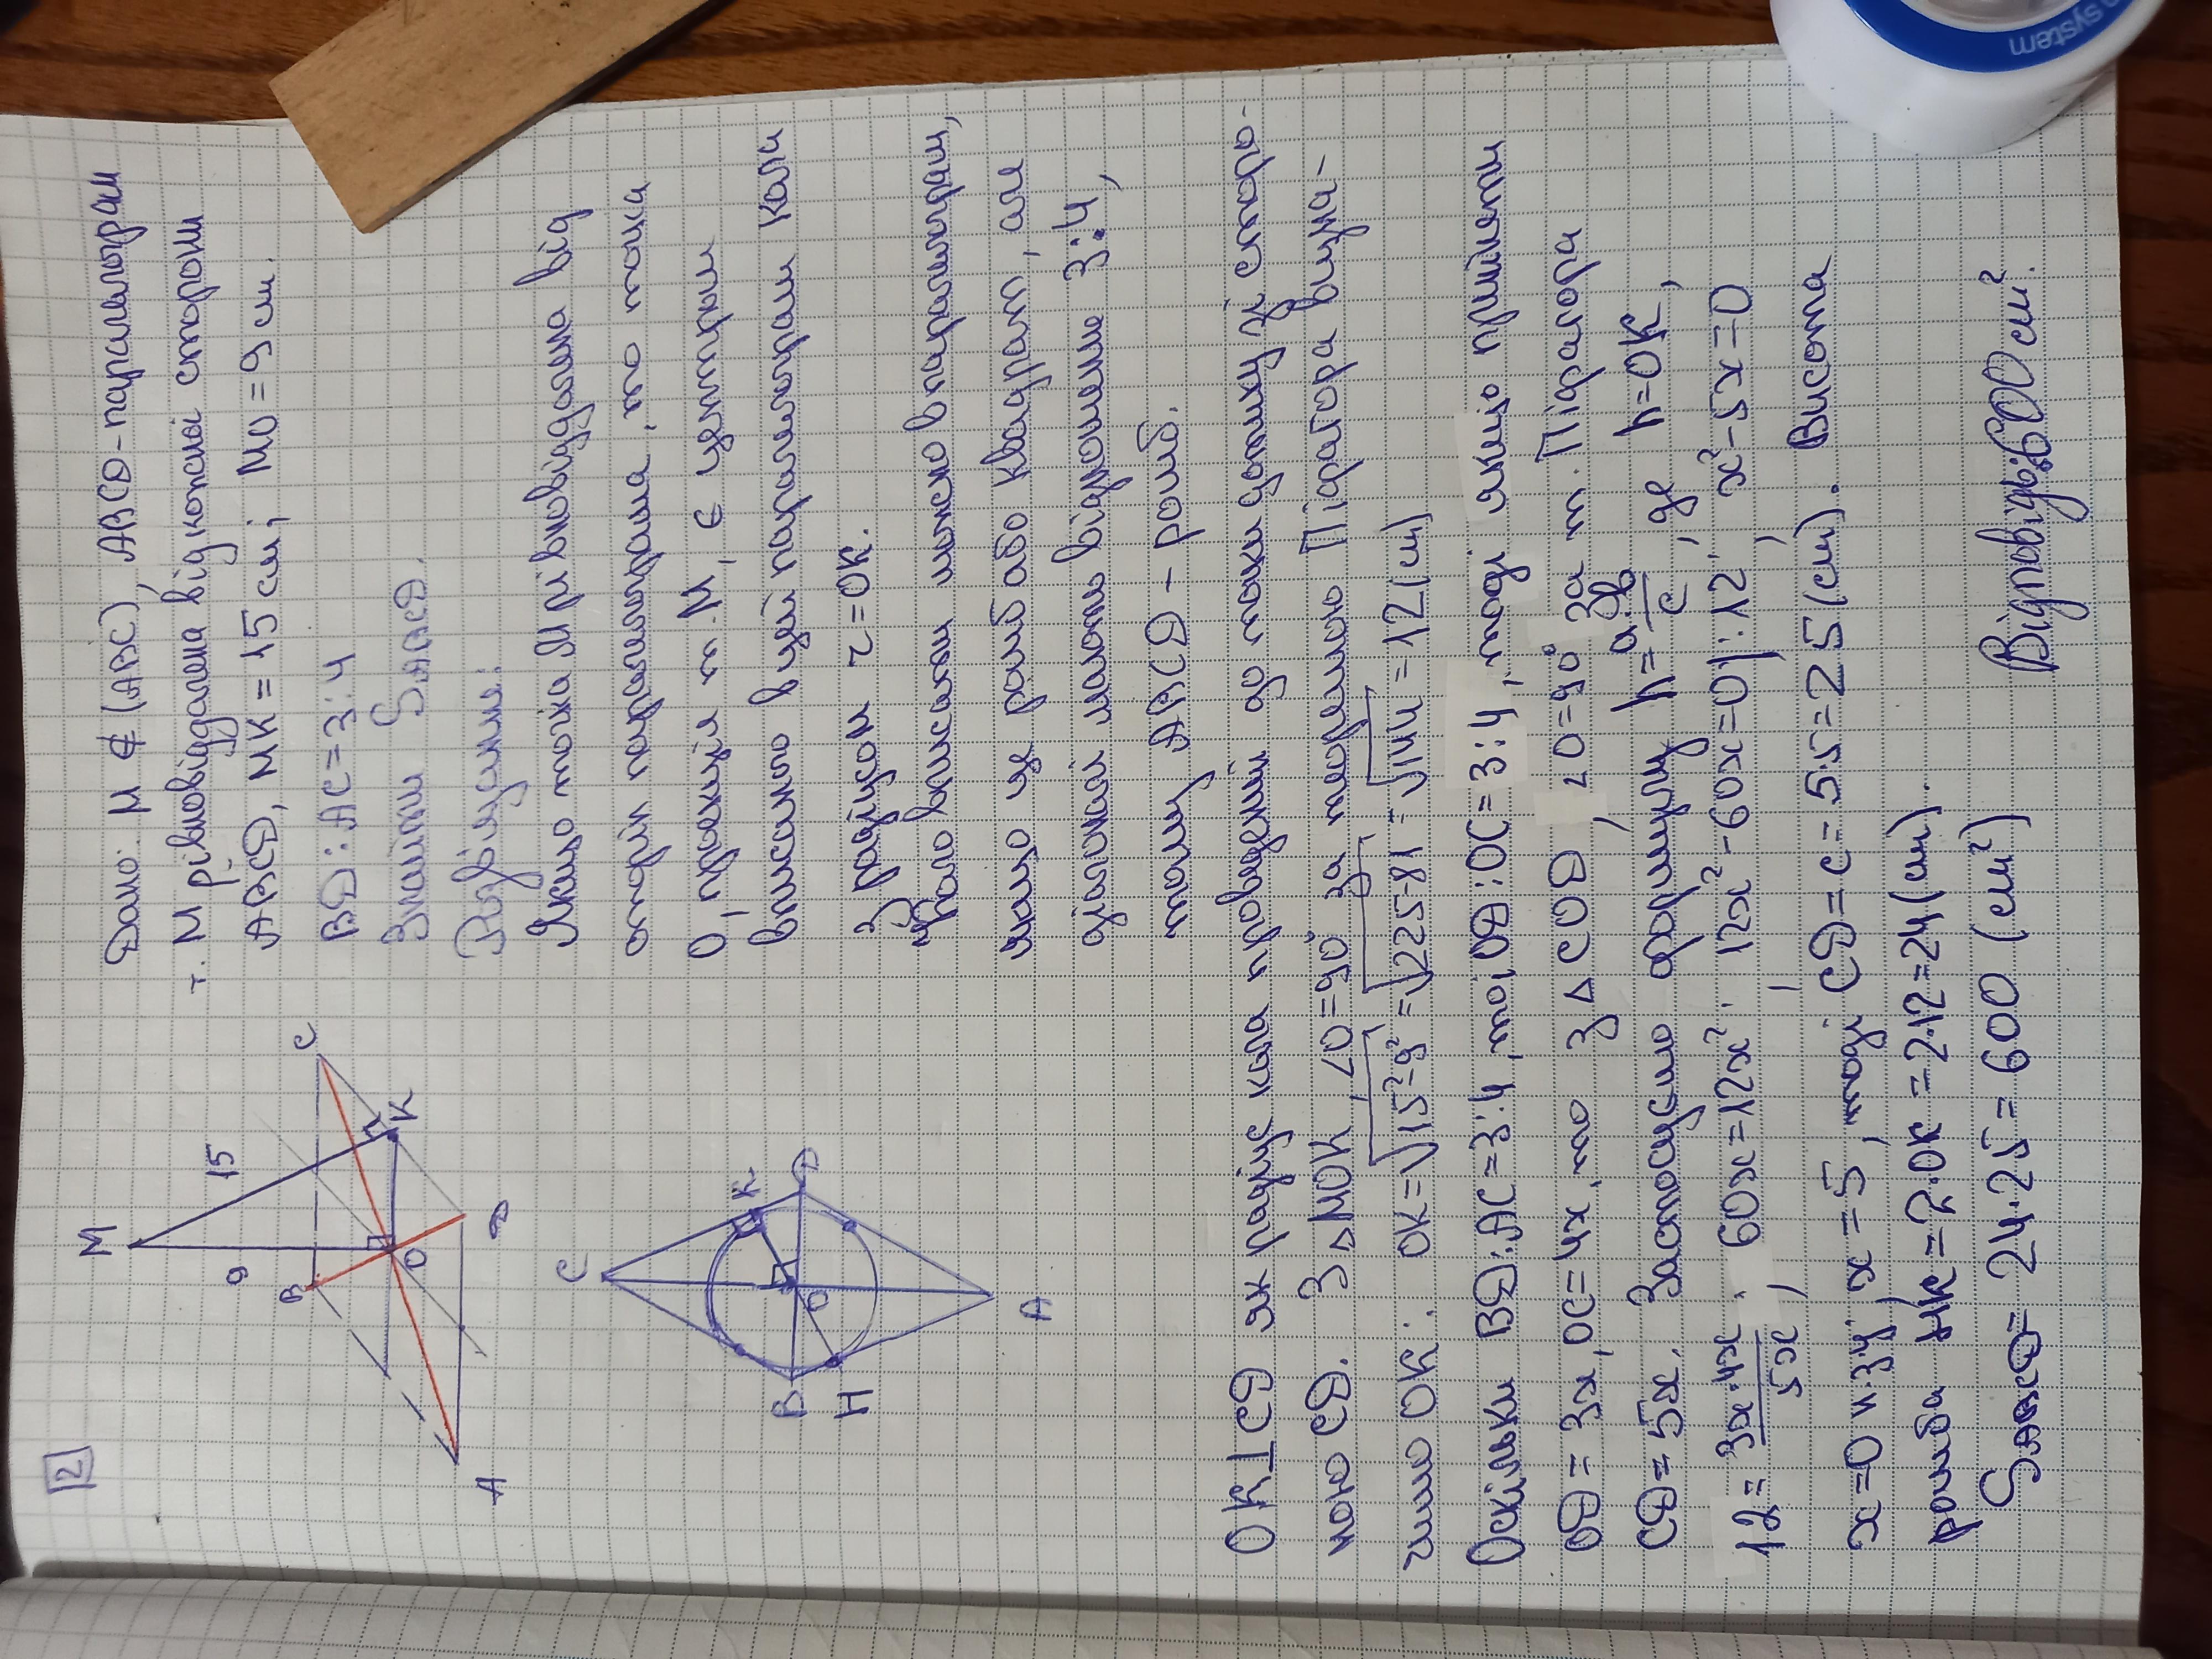 12
M
15
9
B
C
K
O
D
A
C
K
B
O
D
H
A
Дано: M ∉ (ABC), ABCD-паралелограм
т. M рівновіддалена від кожної сторони
ABCD, MK = 15 см; MO = 9 см.
BD : AC = 3 : 4
Знайти SABCD.
Розв'язання:
Якщо точка M рівновіддалена від
сторін паралелограма, то точка
O, проекція т. M, є центром
вписаного в цей паралелограм кола
з радіусом r = OK.
Коло вписати можна в паралелограм,
якщо це ромб або квадрат, але
діагоналі мають відношення 3:4,
тому ABCD - ромб.
OK⊥CD як радіус кола проведений до точки дотику зі сторо-
ною CD. З △MOK, ∠O=90° за теоремою Піфагора визна-
чимо OK: OK = √15²-9² = √225-81 = √144 = 12 (см)
Оскільки BD:AC=3:4, то і OD:OC=3:4, тоді якщо прийняти
OD = 3x, OC = 4x, то з △COD, ∠O=90° за т. Піфагора
CD = 5x. Застосуємо формулу h = a·b/c, де h=OK,
12 = 3x·4x/5x; 60x=12x²; 12x²-60x=0 |:12; x²-5x=0
x=0 н.з.у; x = 5, тоді CD = c = 5·5 = 25 (см). Висота
ромба HK = 2·OK = 2·12 = 24 (см).
SABCD = 24·25 = 600 (см²)
Відповідь: 600 см².
system